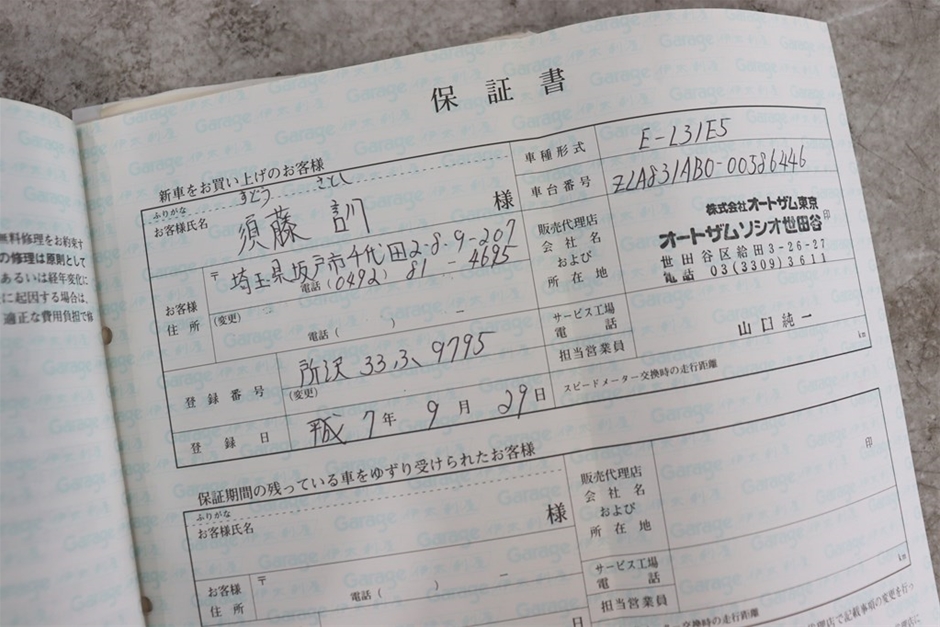 保証書
新車をお買い上げのお客様
ふりがな すどう さとし
お客様氏名 須藤 訓 様
お客様住所
〒 埼玉県坂戸市千代田2-8-9-207
電話(0492) 81 - 4695
(変更)
電話( ) -
登録番号 所沢 33 ふ 9795
(変更)
登録日 平成 7年 9月 29日
車種形式 E-L31E5
車台番号 ZLA831AB0-00586446
販売代理店会社名および所在地
株式会社オートザム東京
オートザムソシオ世田谷 印
世田谷区給田3-26-27
電話 03(3309)3611
サービス工場電話
担当営業員 山口純一
スピードメーター交換時の走行距離 km
保証期間の残っている車をゆずり受けられたお客様
ふりがな
お客様氏名 様
お客様住所
〒
電話( ) -
日
販売代理店会社名および所在地 印
サービス工場電話
担当営業員
スピードメーター交換時の走行距離 km
無料修理をお約束す
の修理は原則として
あるいは経年変化に
に起因する場合は、
適正な費用負担で修
理店で記載事項の変更を行っ
Garage 伊太利屋